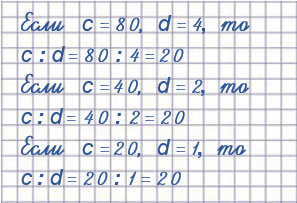 Если c = 80, d = 4, то
c : d = 80 : 4 = 20
Если c = 40, d = 2, то
c : d = 40 : 2 = 20
Если c = 20, d = 1, то
c : d = 20 : 1 = 20